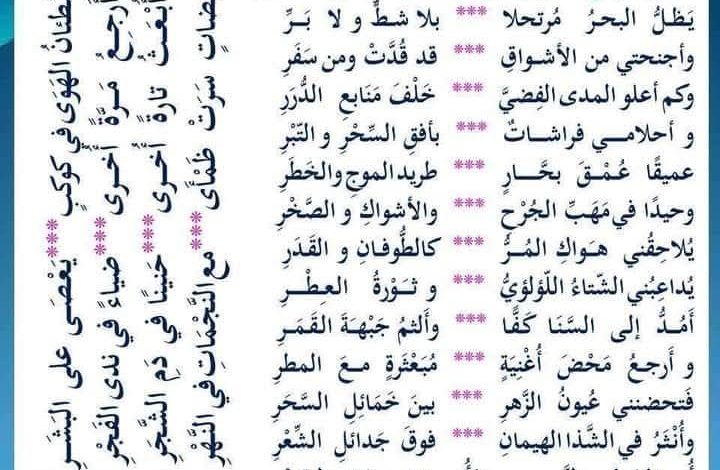 يَظلُّ البحرُ مُرتحلا *** بلا شطٍّ و لا بَــرِّ
وأجنحتي من الأشـواقِ *** قد قُدَّتْ ومن سَفَرِ
وكم أعلو المدى الفِضيَّ *** خَلْفَ مَنَابعِ الدُّرَرِ
و أحلامـي فراشـاتٌ *** بأفقِ السِّحْرِ و التّبْرِ
عميقًا عُمْـقَ بحَّـارٍ *** طريد الموجِ والخَطَرِ
وحيدًا في مَهَبِّ الجُرْحِ *** والأشواكِ و الصَّخْرِ
يُلاحِقُني هـواكِ المُـرُّ *** كالطُّوفـانِ و القَدَرِ
يُداعِبُني الشّتاءُ اللّؤلؤيُّ *** و ثـوْرةُ العِطْــرِ
أمُدُّ إلى السَّنَا كَفًّا *** وألثمُ جَبْهَةَ القَمَـرِ
و أرجعُ مَحْضَ أغْنِيَةٍ *** مُبَعْثَرةٍ مـعَ المطرِ
فَتحضنني عيُونُ الزَّهرِ *** بينَ خَمَائلِ السَّحَرِ
وأُنْثَرُ في الشَّذا الهيمانِ *** فوقَ جدائلِ الشِّعْرِ
الهَوَى في كوكبٍ *** يَعْصَى على البَشَرِ
أرجـعُ مـرَّةً أخـرى *** ضياءً في ندى الفَجْرِ
أُبْعَثُ تارةً أخرى *** حَنينًا في دَمِ الشَّجَرِ
سَرَتْ ظَمْأى *** مع النَّجْمَاتِ في النَّهْرِ